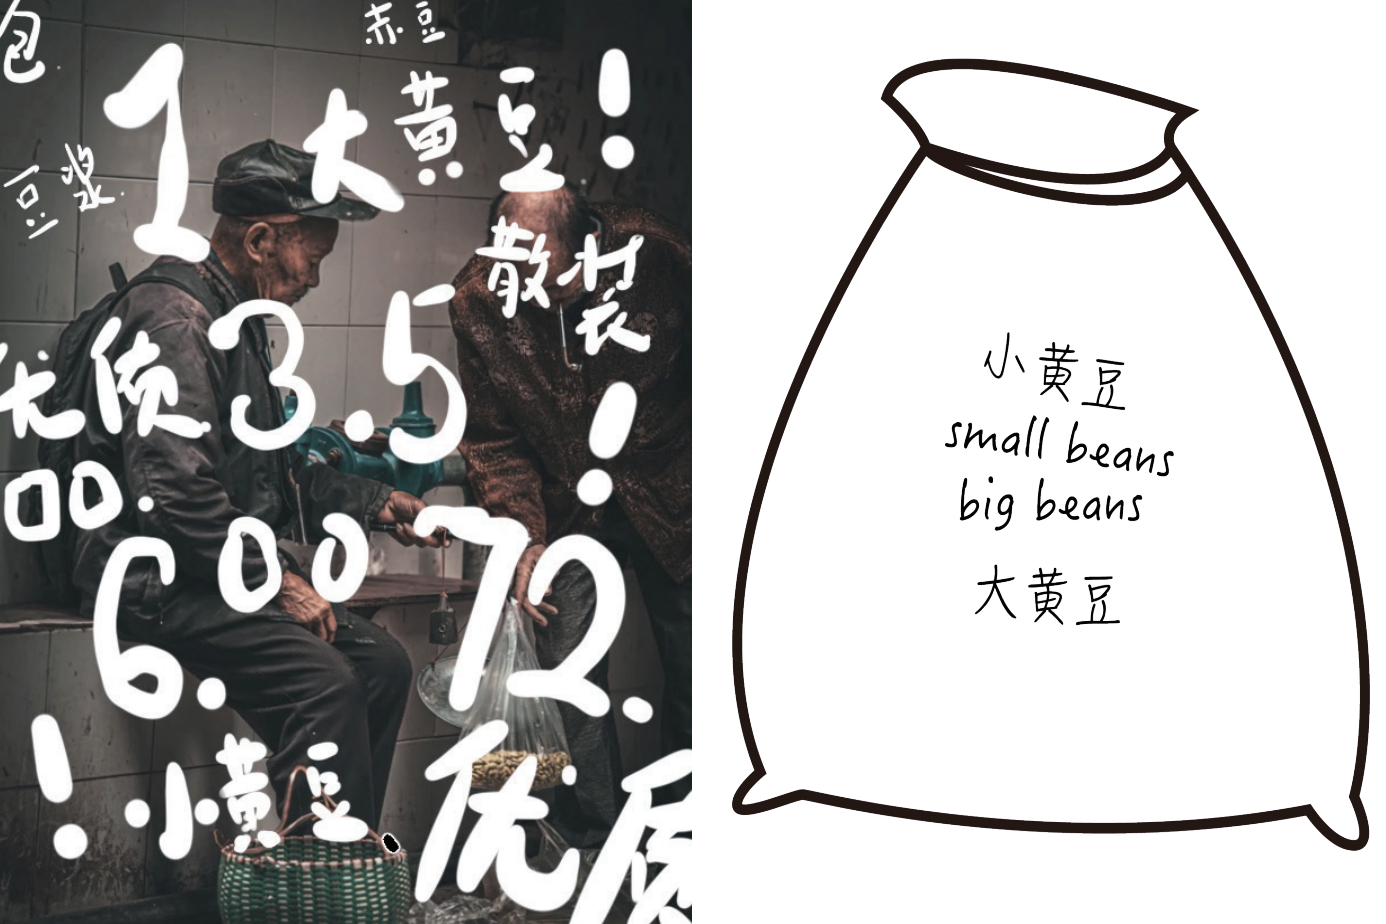 包
赤豆
1 大黄豆!
豆浆
散装
优质 3.5 !
00.
6.00 72.
! 小黄豆
优质
小黄豆
small beans
big beans
大黄豆